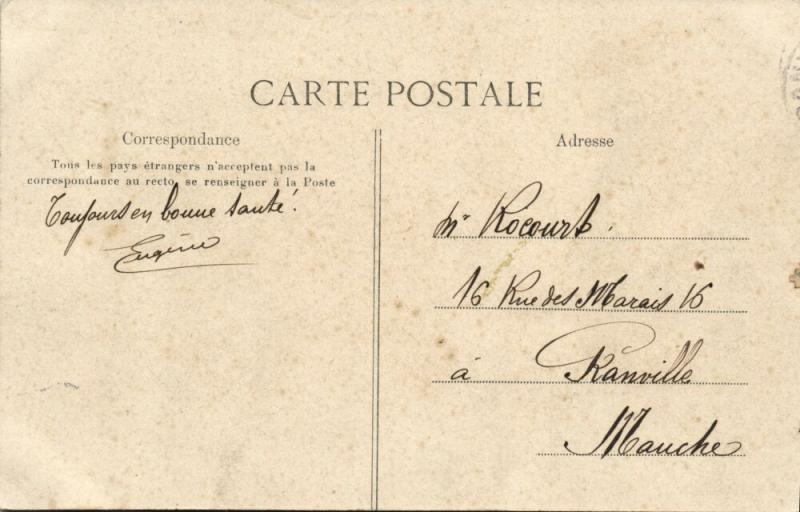 CARTE POSTALE
Correspondance
Tous les pays étrangers n'acceptent pas la
correspondance au recto, se renseigner à la Poste
Toujours en bonne santé!
Eugène
Adresse
Mr Rocourt.
16 Rue des Marais 16
à Granville
Manche